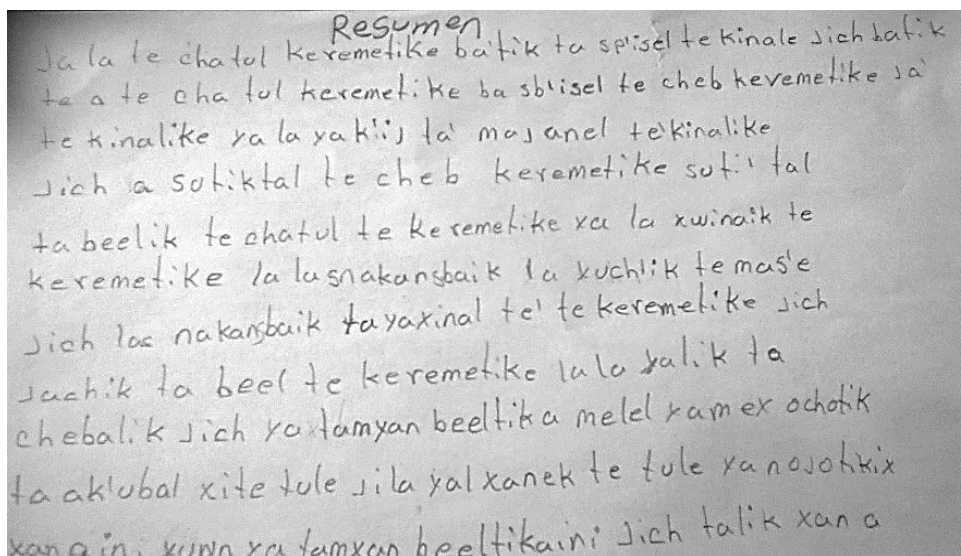 Resumen
Ja la te chatul keremetike batik ta sp'isel te kinale Jich batik
ta a te cha tul keremetike ba sb'isel te cheb keremetike Ja'
te kinalike ya la yak'ij ta' majanel te'kinalike
Jich a sutiktal te cheb keremetike suti' tal
ta beelik te chatul te keremetike ya la xwinaik te
keremetike la lusnakansbaik la kuch'ik te mats'e
Jich las nakansbaik ta yaxinal te' te keremetike Jich
Jachik ta beel te keremetike la la yalik ta
chebalik Jich ya tamyan beeltika melel yamex ochotik
ta ak'ubal xi te tule ji la yal xanek te tule ya nojotikix
beeltikaini Jich talik xan a